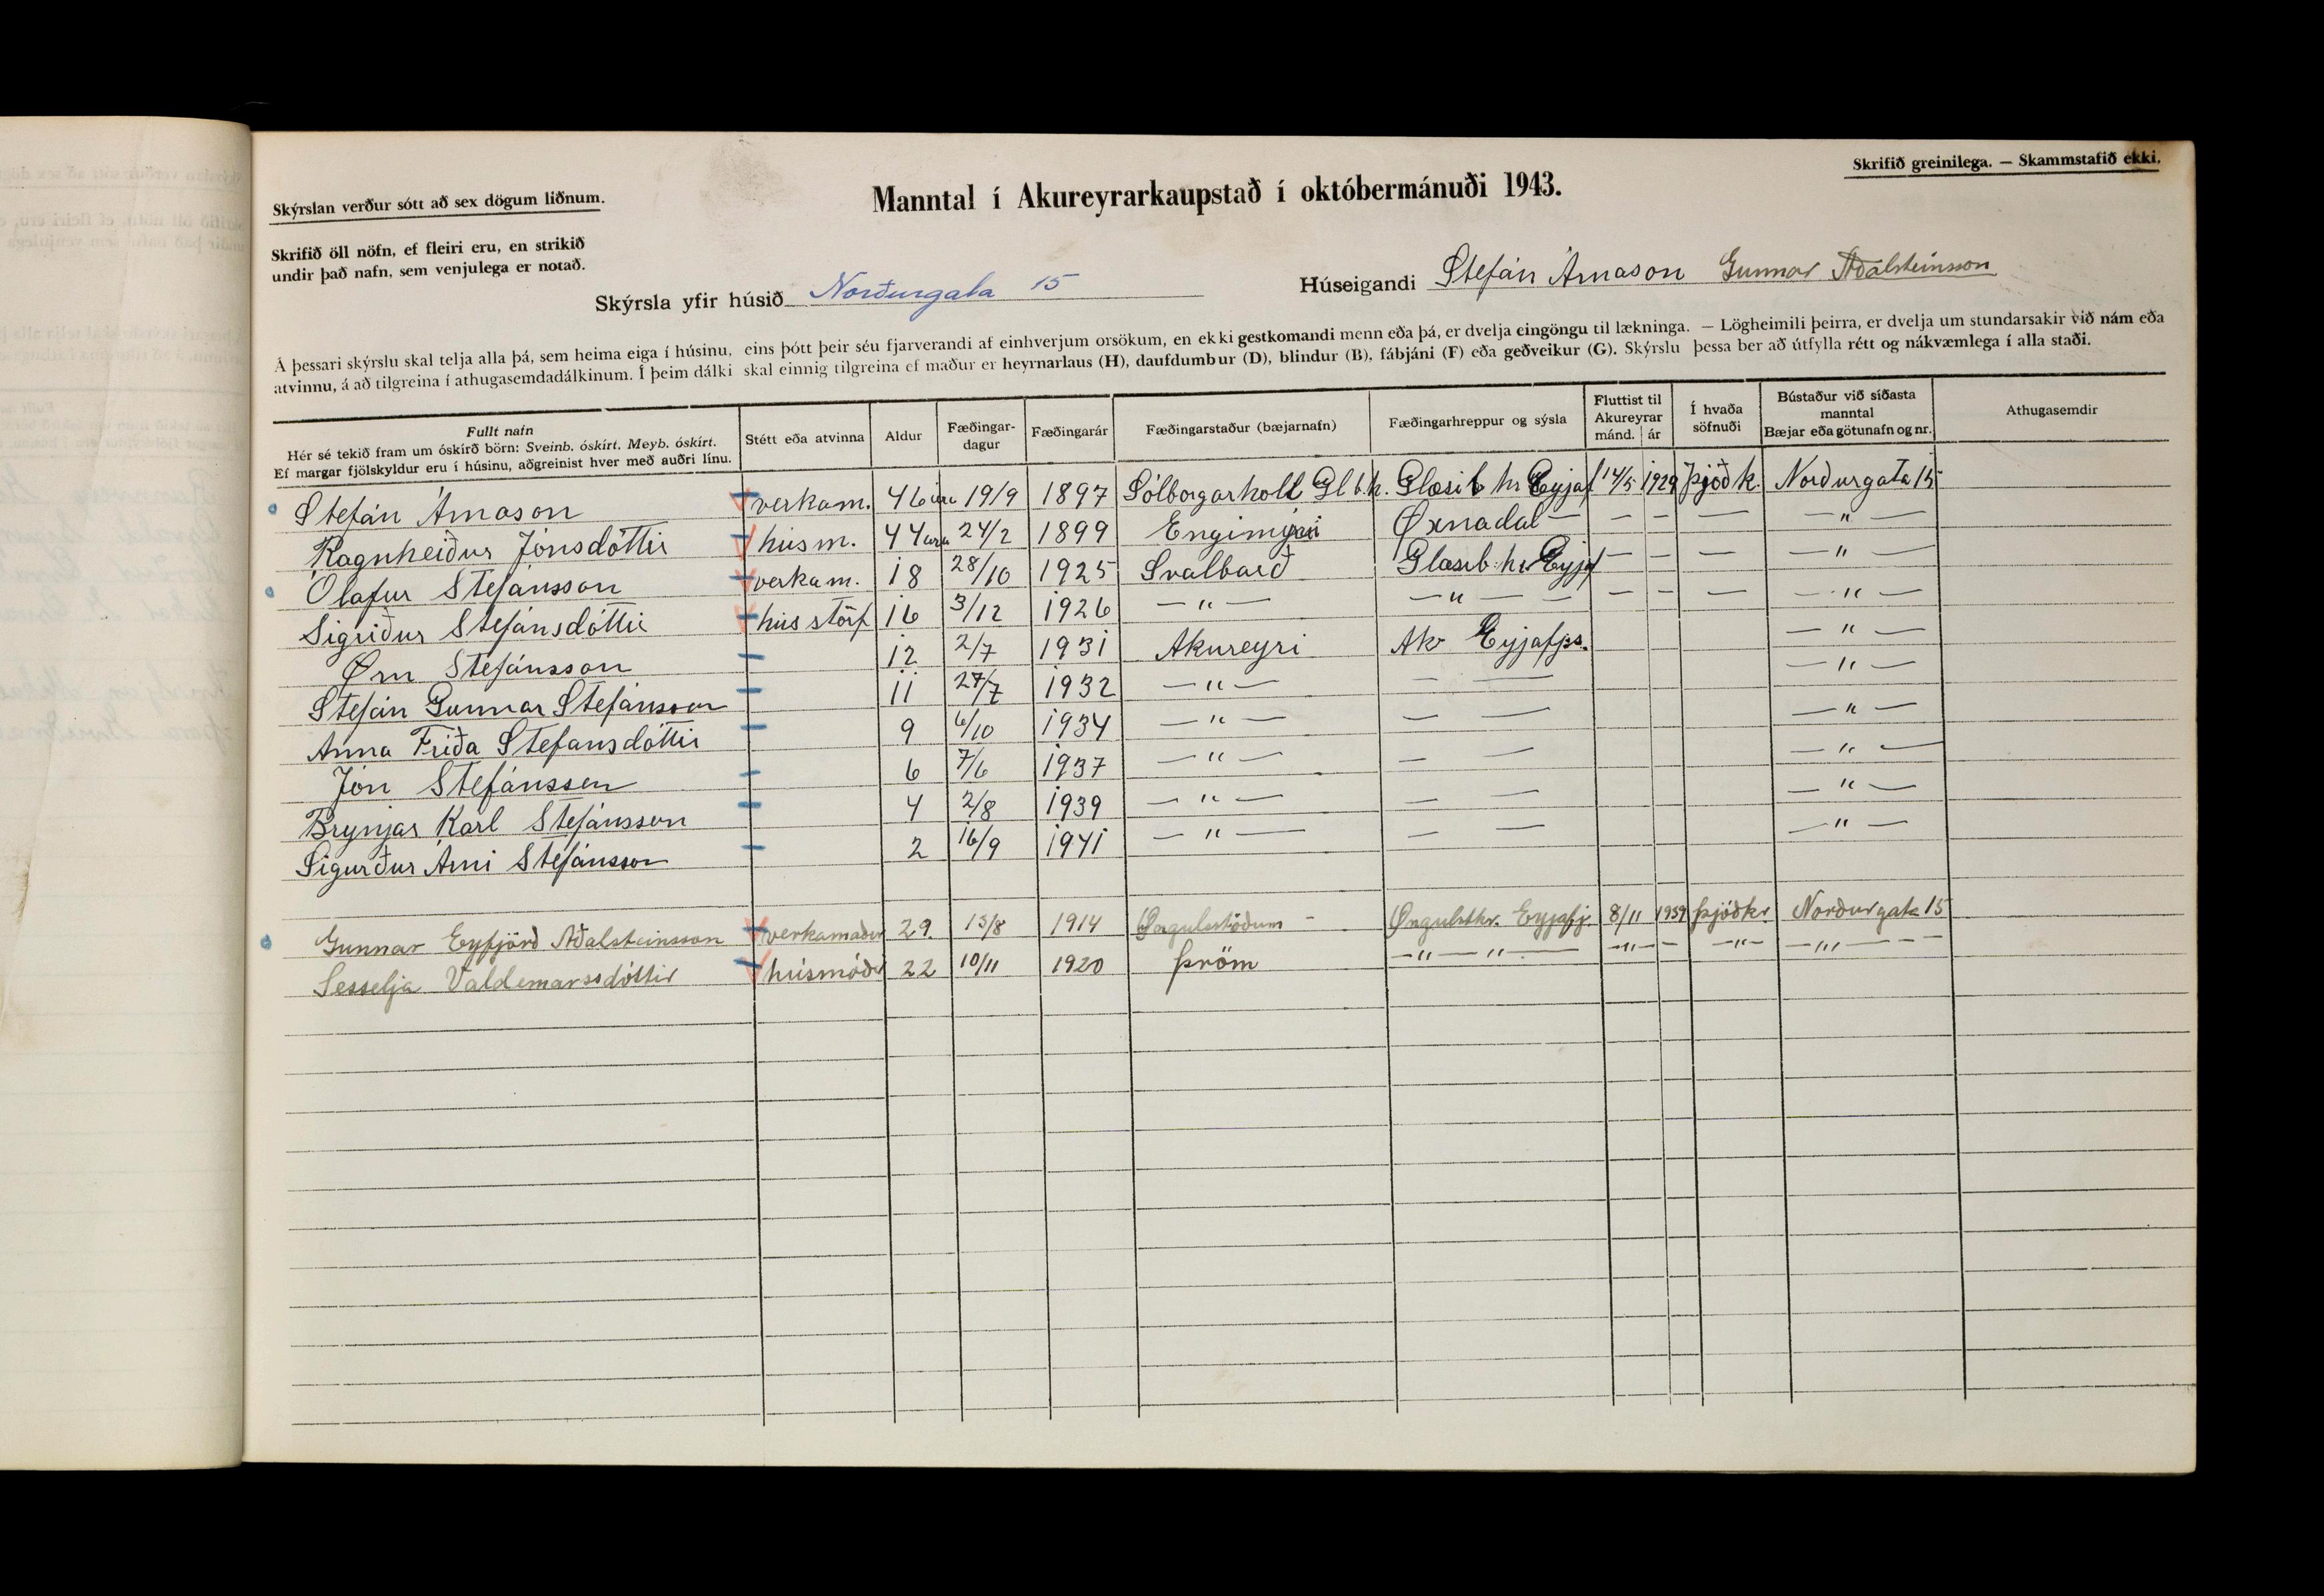 Skrifið greinilega. — Skammstafið ekki.
Skýrslan verður sótt að sex dögum liðnum.
Manntal í Akureyrarkaupstað í októbermánuði 1943.
Skrifið öll nöfn, ef fleiri eru, en strikið
undir það nafn, sem venjulega er notað.
Skýrsla yfir húsið Norðurgata 15
Húseigandi Stefán Árnason Gunnar Aðalsteinsson
Á þessari skýrslu skal telja alla þá, sem heima eiga í húsinu, eins þótt þeir séu fjarverandi af einhverjum orsökum, en ekki gestkomandi menn eða þá, er dvelja eingöngu til lækninga. — Lögheimili þeirra, er dvelja um stundarsakir við nám eða
atvinnu, á að tilgreina í athugasemdadálkinum. Í þeim dálki skal einnig tilgreina ef maður er heyrnarlaus (H), daufdumbur (D), blindur (B), fábjáni (F) eða geðveikur (G). Skýrslu þessa ber að útfylla rétt og nákvæmlega í alla staði.
Fullt nafn
Hér sé tekið fram um óskírð börn: Sveinb. óskírt. Meyb. óskírt.
Ef margar fjölskyldur eru í húsinu, aðgreinist hver með auðri línu.
Stétt eða atvinna
Aldur
Fæðingar-
dagur
Fæðingarár
Fæðingarstaður (bæjarnafn)
Fæðingarhreppur og sýsla
Fluttist til
Akureyrar
mánd. ár
Í hvaða
söfnuði
Bústaður við síðasta
manntal
Bæjar eða götunafn og nr.
Athugasemdir
Stefán Árnason verkam. 46 ára 19/9 1897 Sólborgarholl Gl b.h. Glæsib hr Eyjaf 14/5 1929 Þjóðk. Norðurgata 15
Ragnheiður Jónsdóttir húsm. 44 ára 24/2 1899 Engimýri Øxnadal — — — — — " —
Ólafur Stefánsson verkam. 18 28/10 1925 Svalbarð Glæsib. hr Eyjaf — — — — " —
Sigríður Stefánsdóttir hússtörf 16 3/12 1926 — " — — " — — — — — — " —
Ørn Stefánsson 12 2/7 1931 Akureyri Ak Eyjafjs. — " —
Stefán Gunnar Stefánsson 11 27/7 1932 — " — — — — " —
Anna Fríða Stefansdóttir 9 6/10 1934 — " — — — — " —
Jón Stefánsson 6 7/6 1937 — " — — — — " —
Brynjar Karl Stefánsson 4 2/8 1939 — " — — — — " —
Sigurður Árni Stefánsson 2 16/9 1941 — " — — — — " —
Gunnar Eyfjörð Aðalsteinsson verkamaður 29. 13/8 1914 Öngulstöðum Øngulstkr. Eyjafj. 8/11 1939 Þjóðkr Norðurgata 15
Sesselja Valdemarssdóttir húsmóðir 22 10/11 1920 Þröm — " — " — — " — — — " — — " — — —